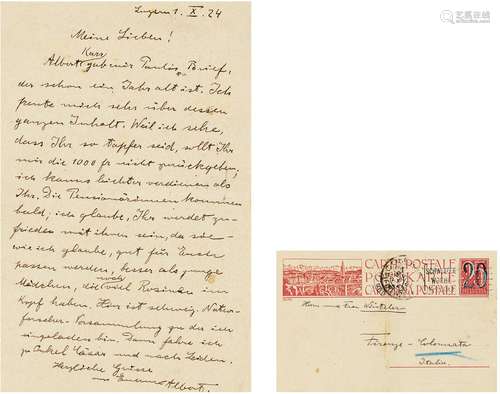 Luzern 1. X. 24
Meine Lieben!
Albert Karr gab mir Paulis Brief,
der schon ein Jahr alt ist. Ich
freute mich sehr über dessen
ganzen Inhalt. Weil ich sehe,
dass Ihr so tapfer seid, sollt Ihr
mir die 1000 fr nicht zurückgeben;
ich kanns leichter verdienen als
Ihr. Die Pensionärinnen kommen
bald; ich glaube, Ihr werdet zu-
frieden mit ihnen sein, da sie
wie ich glaube, gut für Euch
passen werden, besser als junge
Mädchen, die noch viel Rosinen im
Kopf haben. Hier ist schweiz. Natur-
forscher-Versammlung zu der ich
eingeladen bin. Dann fahre ich
zu Onkel Cäsar und nach Leiden.
Herzliche Grüsse
Albert.
CARTE POSTALE
POSTKARTE
CARTOLINA POSTALE
20
Winteler
Firenze - Colonnata
Italien